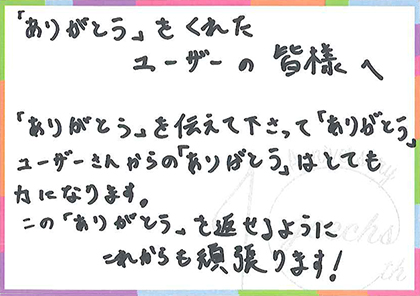 「ありがとう」をくれた
ユーザーの皆様へ
「ありがとう」を伝えて下さって「ありがとう」
ユーザーさんからの「ありがとう」はとても
力になります。
この「ありがとう」を返せるように
これからも頑張ります!
Anniversary
th